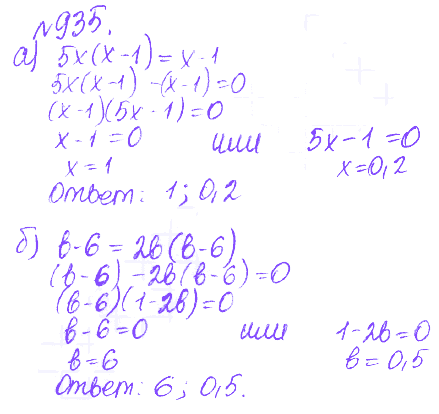 №935.
а) 5x(x-1) = x-1
5x(x-1) -(x-1)=0
(x-1)(5x-1)=0
x-1=0 или 5x-1=0
x=1 x=0,2
Ответ: 1; 0,2
б) в-6 = 2в(в-6)
(в-6) -2в(в-6)=0
(в-6)(1-2в)=0
в-6=0 или 1-2в=0
в=6 в=0,5
Ответ: 6; 0,5.